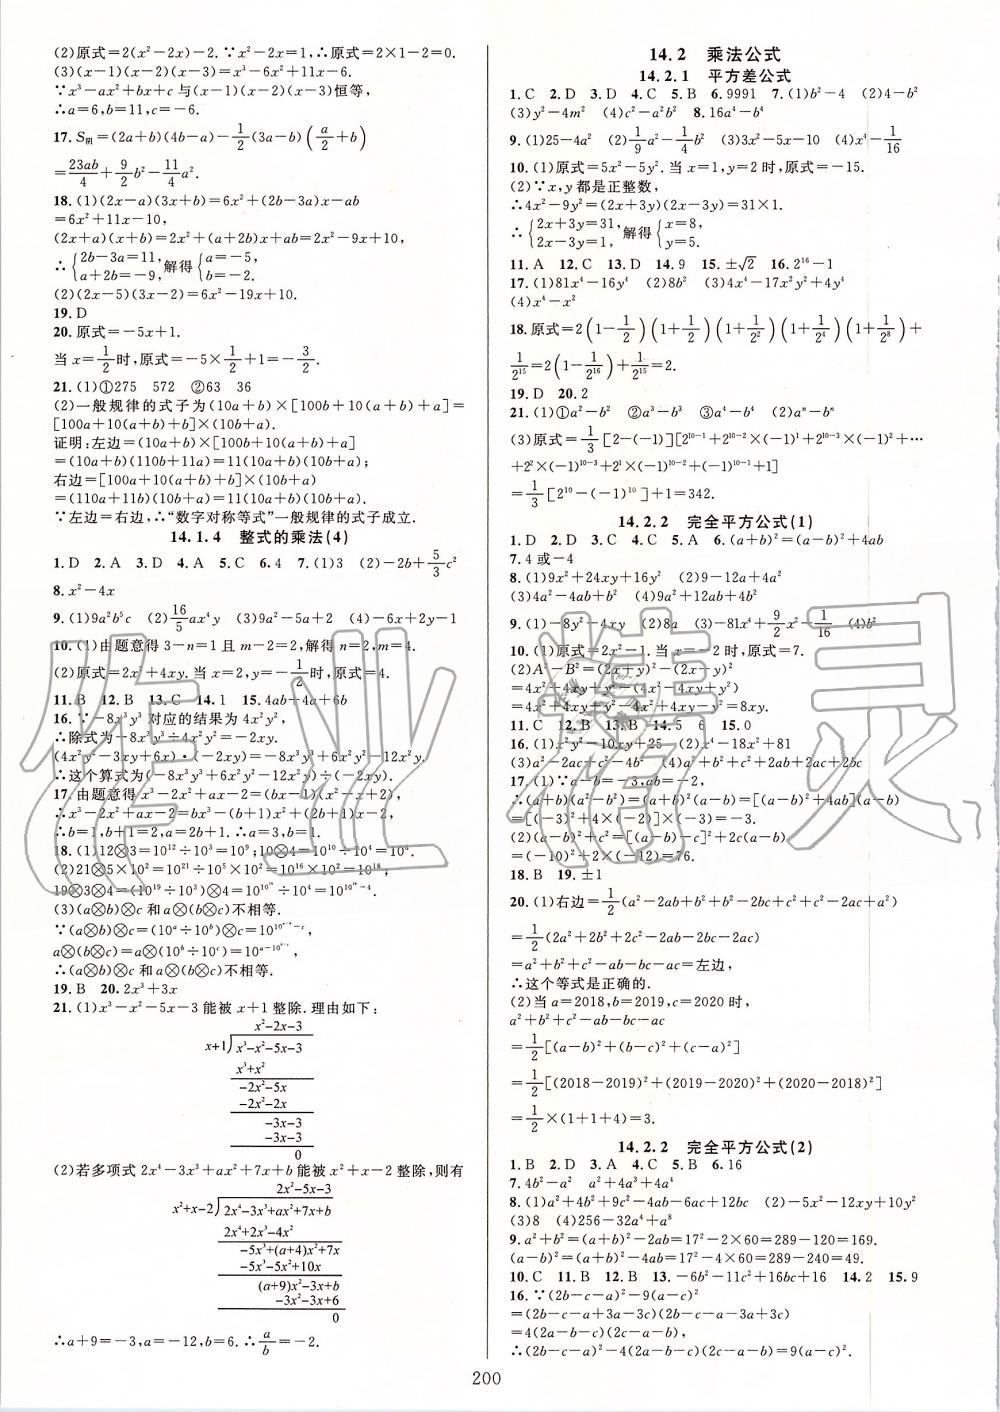 (2)原式=2(x²-2x)-2.∵x²-2x=1,∴原式=2×1-2=0.
(3)(x-1)(x-2)(x-3)=x³-6x²+11x-6.
∵x³-ax²+bx+c与(x-1)(x-2)(x-3)恒等,
∴a=6,b=11,c=-6.
17.S阴=(2a+b)(4b-a)-1/2(3a-b)(a/2+b)
=23ab/4+9/2b²-11/4a².
18.(1)(2x-a)(3x+b)=6x²+(2b-3a)x-ab
=6x²+11x-10,
(2x+a)(x+b)=2x²+(a+2b)x+ab=2x²-9x+10,
∴{2b-3a=11, a+2b=-9, 解得{a=-5, b=-2.
(2)(2x-5)(3x-2)=6x²-19x+10.
19.D
20.原式=-5x+1.
当x=1/2时,原式=-5×1/2+1=-3/2.
21.(1)①275 572 ②63 36
(2)一般规律的式子为(10a+b)×[100b+10(a+b)+a]=
[100a+10(a+b)+b]×(10b+a).
证明:左边=(10a+b)×[100b+10(a+b)+a]
=(10a+b)(110b+11a)=11(10a+b)(10b+a);
右边=[100a+10(a+b)+b]×(10b+a)
=(110a+11b)(10b+a)=11(10a+b)(10b+a).
∵左边=右边,∴“数字对称等式”一般规律的式子成立.
14.1.4 整式的乘法(4)
1.D 2.A 3.D 4.A 5.C 6.4 7.(1)3 (2)-2b+5/3c²
8.x²-4x
9.(1)9a²b⁵c (2)16/5ax⁴y (3)9a²-5a+2 (4)-6x+2y-1
10.(1)由题意得3-n=1且m-2=2,解得n=2,m=4.
(2)原式=2x²+4xy.当x=-2,y=-1/2时,原式=4.
11.B 12.B 13.C 14.1 15.4ab+4a+6b
16.∵-8x³y³对应的结果为4x²y²,
∴除式为-8x³y³÷4x²y²=-2xy.
(4x²y²-3xy+6x)·(-2xy)=-8x³y³+6x²y²-12x²y,
∴这个算式为(-8x³y³+6x²y²-12x²y)÷(-2xy).
17.由题意得x³-2x²+ax-2=(bx-1)(x²-x+2),
∴x³-2x²+ax-2=bx³-(b+1)x²+(2b+1)x-2,
∴b=1,b+1=2,a=2b+1.∴a=3,b=1.
18.(1)12⊗3=10¹²÷10³=10⁹;10⊗4=10¹⁰÷10⁴=10⁶.
(2)21⊗5×10²=10²¹÷10⁵×10²=10¹⁶×10²=10¹⁸;
(3)(a⊗b)⊗c和a⊗(b⊗c)不相等.
∴(a⊗b)⊗c和a⊗(b⊗c)不相等.
19.B 20.2x³+3x
21.(1)x³-x²-5x-3能被x+1整除.理由如下:
x²-2x-3
x+1)x³-x²-5x-3
x³+x²
-2x²-5x
-2x²-2x
-3x-3
-3x-3
0
(2)若多项式2x⁴-3x³+ax²+7x+b能被x²+x-2整除,则有
2x²-5x-3
x²+x-2)2x⁴-3x³+ax²+7x+b
2x⁴+2x³-4x²
-5x³+(a+4)x²+7x
-5x³-5x²+10x
(a+9)x²-3x+b
-3x²-3x+6
0
∴a+9=-3,a=-12,b=6.∴a/b=-2.
14.2 乘法公式
14.2.1 平方差公式
1.C 2.D 3.D 4.C 5.B 6.9991 7.(1)b²-4 (2)4-b²
(3)y²-4m² (4)c²-a²b² 8.16a⁴-b⁴
9.(1)25-4a² (2)1/9a²-1/4b² (3)3x²-5x-10 (4)x⁴-1/16
10.(1)原式=5x²-5y².当x=1,y=2时,原式=-15.
(2)∵x,y都是正整数,
∴4x²-9y²=(2x+3y)(2x-3y)=31×1.
∴{2x+3y=31, 2x-3y=1, 解得{x=8, y=5.
11.A 12.C 13.D 14.9 15.±√2 16.2¹⁶-1
17.(1)81x⁴-16y⁴ (2)8b² (3)4x⁴-17x²y²+4y⁴
(4)x⁴-x²
18.原式=2(1-1/2)(1+1/2)(1+1/2²)(1+1/2⁴)(1+1/2⁸)+
1/2¹⁵=2(1-1/2¹⁶)+1/2¹⁵=2.
19.D 20.2
21.(1)①a²-b² ②a³-b³ ③a⁴-b⁴ (2)aⁿ-bⁿ
(3)原式=1/3[2-(-1)][2¹⁰⁻¹+2¹⁰⁻²×(-1)¹+2¹⁰⁻³×(-1)²+…
+2²×(-1)¹⁰⁻³+2¹×(-1)¹⁰⁻²+(-1)¹⁰⁻¹+1]
=1/3[2¹⁰-(-1)¹⁰]+1=342.
14.2.2 完全平方公式(1)
1.D 2.D 3.C 4.C 5.A 6.(a+b)²=(a-b)²+4ab
7.4或-4
8.(1)9x²+24xy+16y² (2)9-12a+4a²
(3)4a²-4ab+b² (4)9a²+12ab+4b²
9.(1)-8y²-4xy (2)8a (3)-81x⁴+9/2x²-1/16 (4)b²
10.(1)原式=2x²-1.当x=-2时,原式=7.
(2)A²-B²=(2x+y)²-(2x-y)²
=4x²+4xy+y²-(4x²-4xy+y²)
=4x²+4xy+y²-4x²+4xy-y²=8xy.
11.C 12.B 13.B 14.5 6 15.0
16.(1)x²y²-10xy+25 (2)x⁴-18x²+81
(3)a²-2ac+c²-4b² (4)a²+b²+c²-2ab+2ac-2bc
17.(1)∵a-b=-3,ab=-2,
∴(a+b)(a²-b²)=(a+b)²(a-b)=[(a-b)²+4ab](a-b)
=[(-3)²+4×(-2)]×(-3)=-3.
(2)(a-b)²+c²=[(a-b)-c]²+2c(a-b)
=(-10)²+2×(-12)=76.
18.B 19.±1
20.(1)右边=1/2(a²-2ab+b²+b²-2bc+c²+c²-2ac+a²)
=1/2(2a²+2b²+2c²-2ab-2bc-2ac)
=a²+b²+c²-ab-bc-ac=左边,
∴这个等式是正确的.
(2)当a=2018,b=2019,c=2020时,
a²+b²+c²-ab-bc-ac
=1/2[(a-b)²+(b-c)²+(c-a)²]
=1/2[(2018-2019)²+(2019-2020)²+(2020-2018)²]
=1/2×(1+1+4)=3.
14.2.2 完全平方公式(2)
1.B 2.D 3.C 4.A 5.B 6.16
7.4b²-a² a²+4a³+4a⁴
8.(1)a²+4b²+9c²-4ab-6ac+12bc (2)-5x²-12xy+10y²
(3)8 (4)256-32a⁴+a⁸
9.a²+b²=(a+b)²-2ab=17²-2×60=289-120=169.
(a-b)²=(a+b)²-4ab=17²-4×60=289-240=49.
10.C 11.B 12.B 13.-6b²-11c²+16bc+16 14.2 15.9
16.∵(2b-c-a)²-9(a-c)²
=(2b-c-a+3a-3c)(2b-c-a-3a+3c)
=4(2a-b-c)(2a-b-c),
∴(2b-c-a)²-4(2a-b-c)(2a-b-c)=9(a-c)².
200
作业精灵